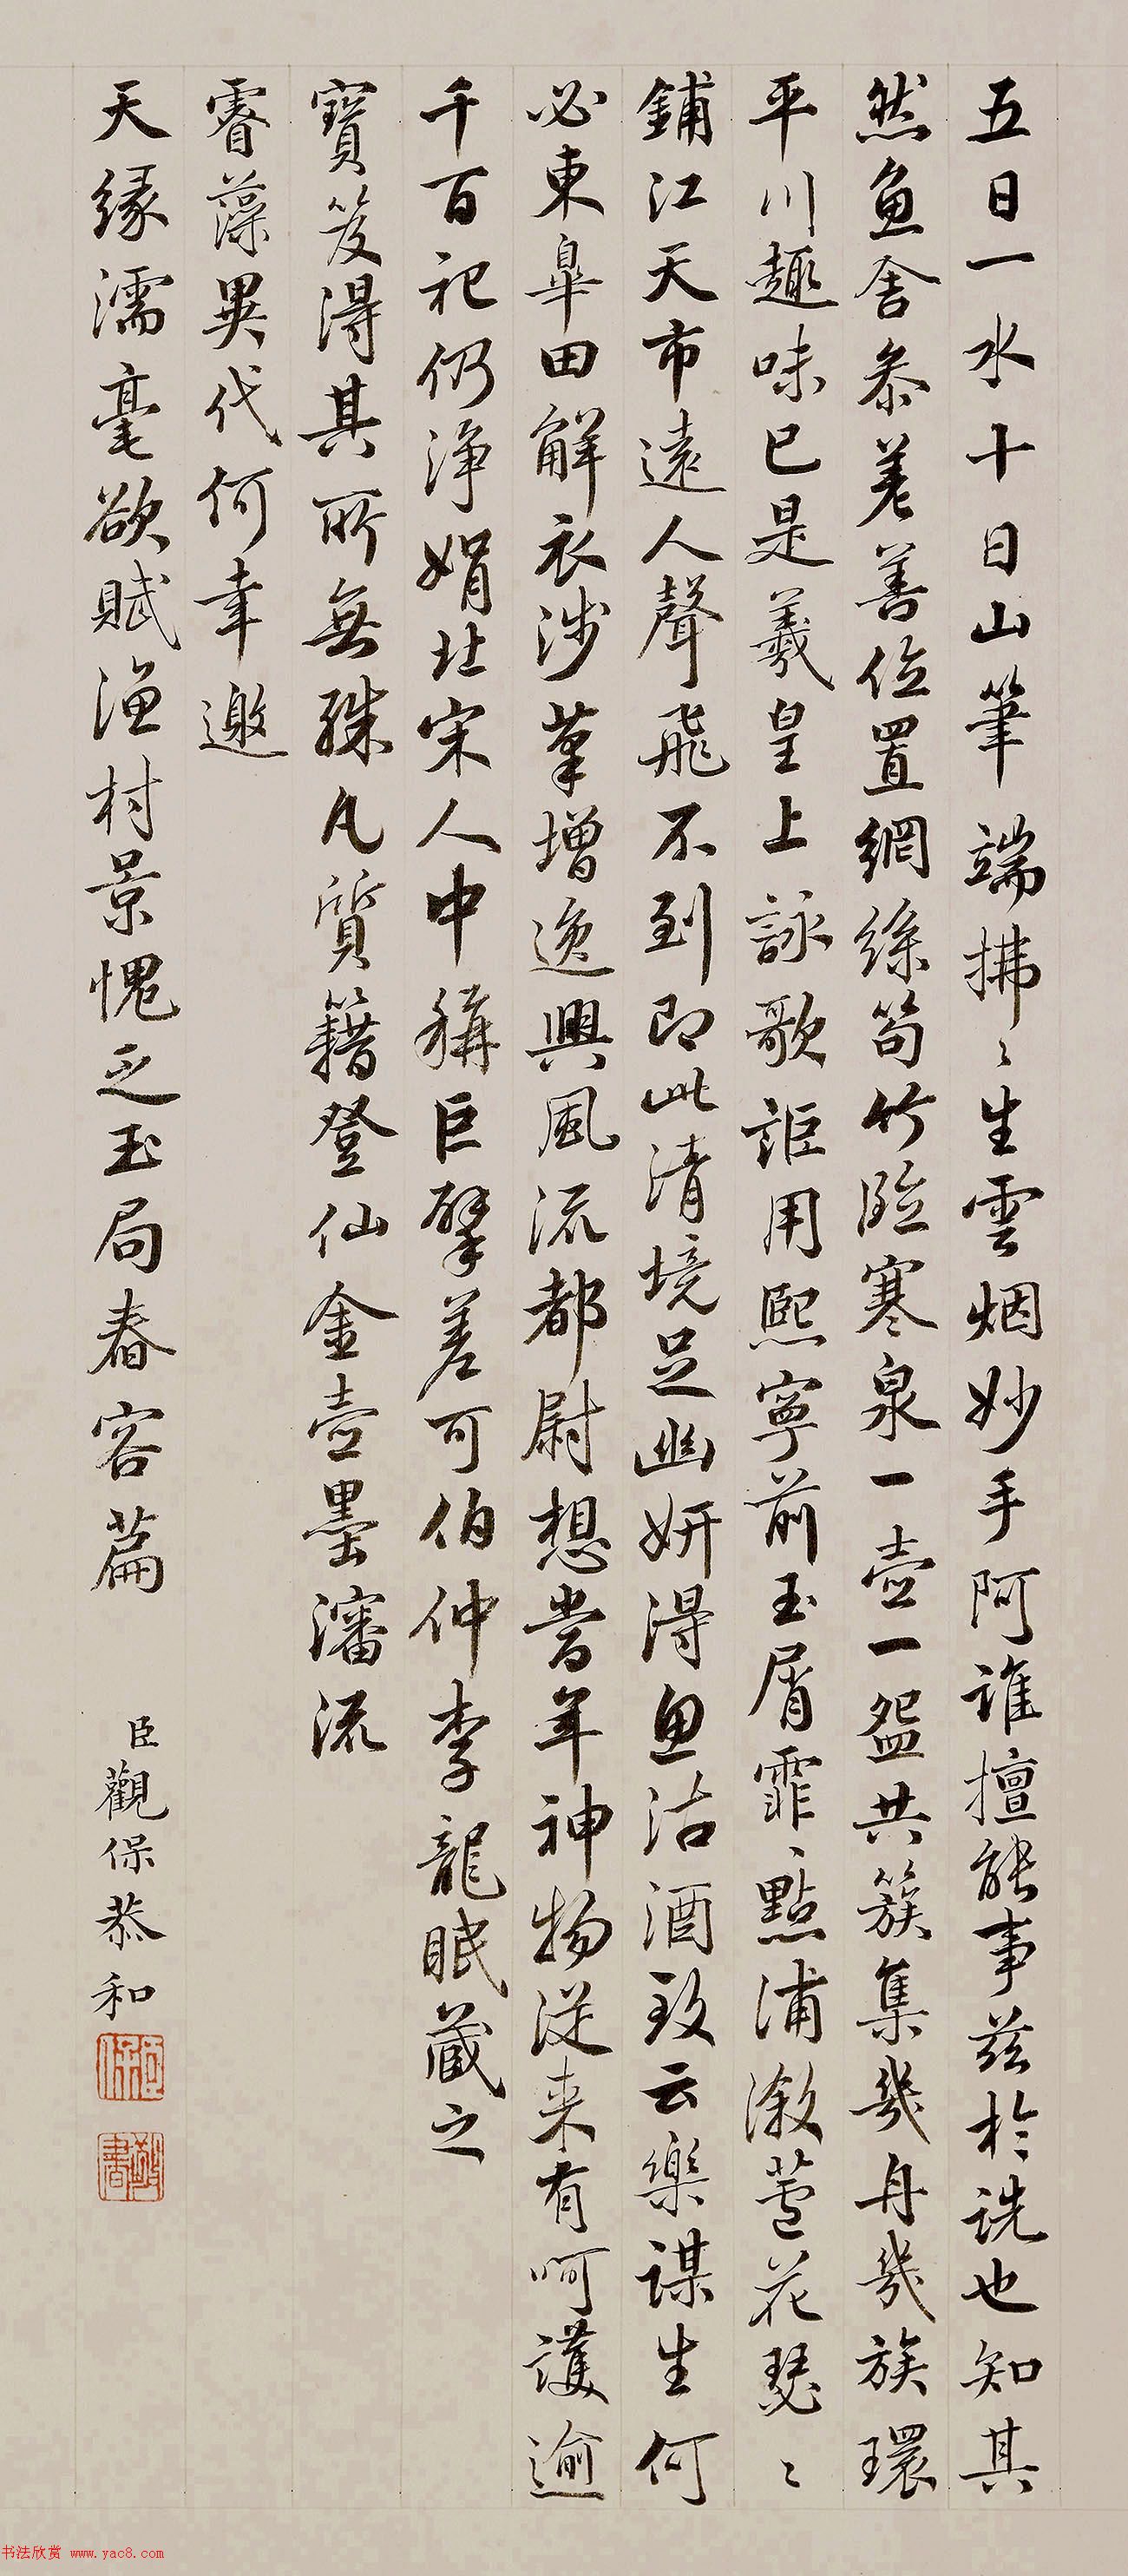 五日一水十日山筆端拂〻生雲烟妙手阿誰擅能事茲於詵也知其
然魚舍参差善位置網絲笱竹臨寒泉一壺一盌共簇集幾舟幾族環
平川趣味已是羲皇上詠歌詎用熙寧前玉屑霏〻點浦漵蒼花瑟〻
鋪江天市遠人聲飛不到即此清境足幽妍得魚沽酒致云樂謀生何
必東皋田解衣涉筆增逸興風流都尉想當年神物從来有呵護逾
千百祀仍淨娟北宋人中稱巨擘差可伯仲李龍眠蔵之
寶笈得其所無殊凡質籍登仙金壺墨瀋流
睿藻異代何幸邀
天緣濡毫欲賦漁村景愧乏玉局舂容篇
臣觀保恭和
書法欣赏 www.yac8.com